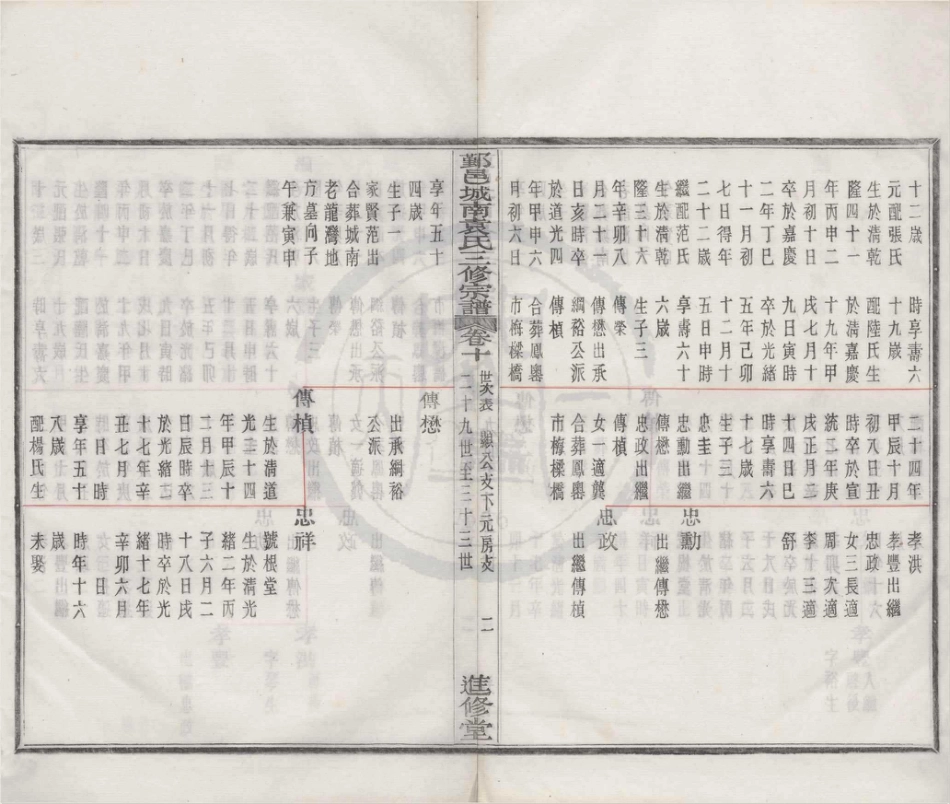 十二歲
元配張氏
生於清乾
隆四十一
年丙申二
月初十日
卒於嘉慶
二年丁巳
十一月初
七日得年
二十二歲
繼配范氏
生於清乾
隆三十六
年辛卯八
月二十一
日亥時卒
於道光四
年甲申六
月初六日
時享壽六
十九歲
配陸氏生
於清嘉慶
十九年甲
戌七月十
九日寅時
卒於光緒
五年己卯
十二月十
五日申時
享壽六十
六歲
生子三
傳榮
傳懋出承
綱裕公派
傳楨
合葬鳳鼍
市梅樑橋
二十四年
甲辰十月
初八日丑
時卒於宣
統二年庚
戌正月二
十四日巳
時享壽六
十七歲
生子三
忠圭
忠勳出繼
傳懋
忠政出繼
傳楨
女一適龔
合葬鳳鼍
市梅樑橋
孝洪
孝豐出繼
忠政
女三長適
周次適
李三適
舒
忠勳
出繼傳懋
忠政
出繼傳楨
鄞邑城南袁氏三修宗譜
卷十
世次表 顯公支下元房支
二十九世至三十三世
二
進修堂
享年五十
四歲
生子一
家賢范出
合葬城南
老龍灣地
方墓向子
午兼寅申
傳懋
出承綱裕
公派
傳楨
生於清道
光二十四
年甲辰十
二月十三
日辰時卒
於光緒二
十七年辛
丑七月十
九日 時
享年五十
八歲
配楊氏生
忠祥
號根堂
生於清光
緒二年丙
子六月二
十八日戌
時卒於光
緒十七年
辛卯六月
日
時年十六
歲
未娶